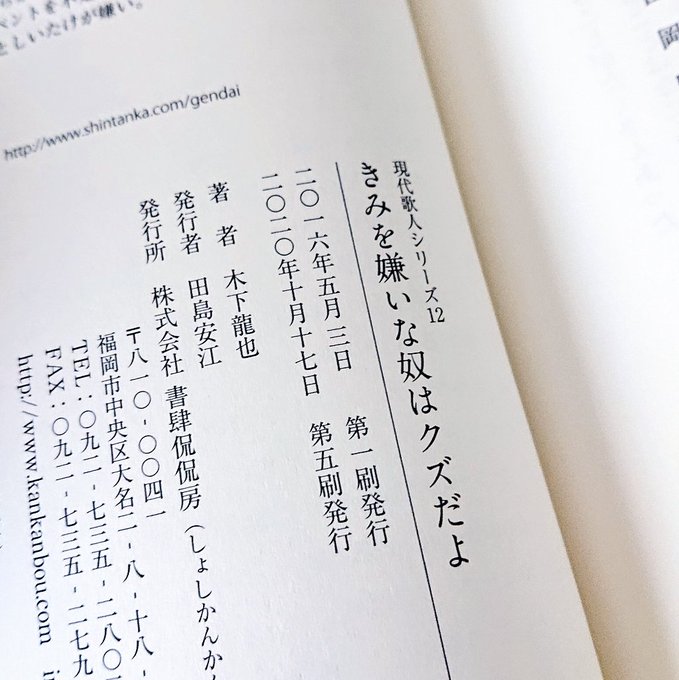 現代歌人シリーズ12
きみを嫌いな奴はクズだよ
二〇一六年五月三日　第一刷発行
二〇二〇年十月十七日　第五刷発行
著　者　木下龍也
発行者　田島安江
発行所　株式会社 書肆侃侃房（しょしかんかん
〒八一〇-〇〇四一
福岡市中央区大名二-八-十八-
TEL：〇九二-七三五-二八〇
FAX：〇九二-七三五-二七九
http://www.kankanbou.com
http://www.shintanka.com/gendai
ベントを
としいたけが嫌い。
岡